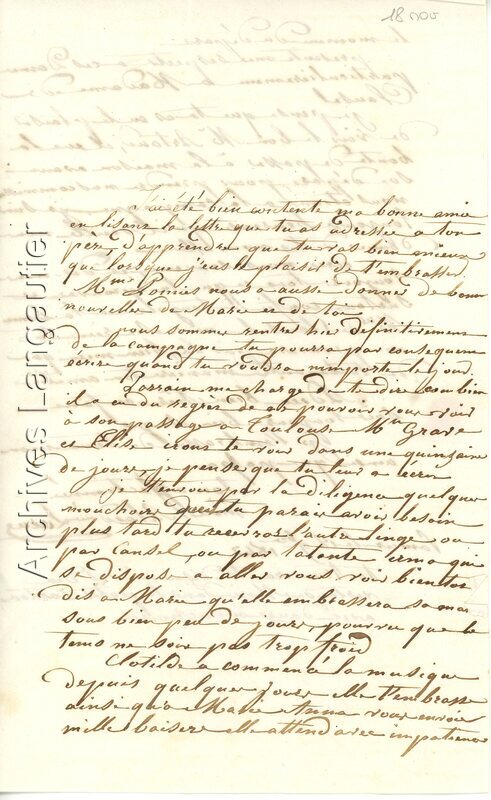 18 nov
J'ai été bien contente ma bonne amie
en lisant la lettre que tu as adressée a ton
père, d'apprendre que tu vas bien mieux
que lorsque j'eus le plaisir de t'embrasser
Mme nous a aussi donner de bonne
nouvelles de Marie et de toi
nous sommes rentrés hier définitivement
de la campagne tu pourra par consequent
écrire quand tu voudra nimporte le jour.
me charge de te dire combien
il a eu du regrès de ne pouvoir vous voir
à son passage a Toulouse Mme Grave
et Elise iront te voir dans une quinzaine
de jours, je pense que tu leur a écrit
je t'envoie par la diligence quelques
mouchoirs dont tu parais avoir besoin
plus tard tu recevras l'autre linge ou
par cansel, ou par ta tante irma qui
se dispose a aller vous voir bientot
dis a Marie qu'elle embrassera sa
sous bien peu de jours, pourvu que le
tems ne soit pas trop froid
Clotilde a commencé la musique
depuis quelques jours elle t'embrasse
ainsi qu'a Marie Anna vous envoie
mille baisers elle attend avec impatience
Archives Langautier